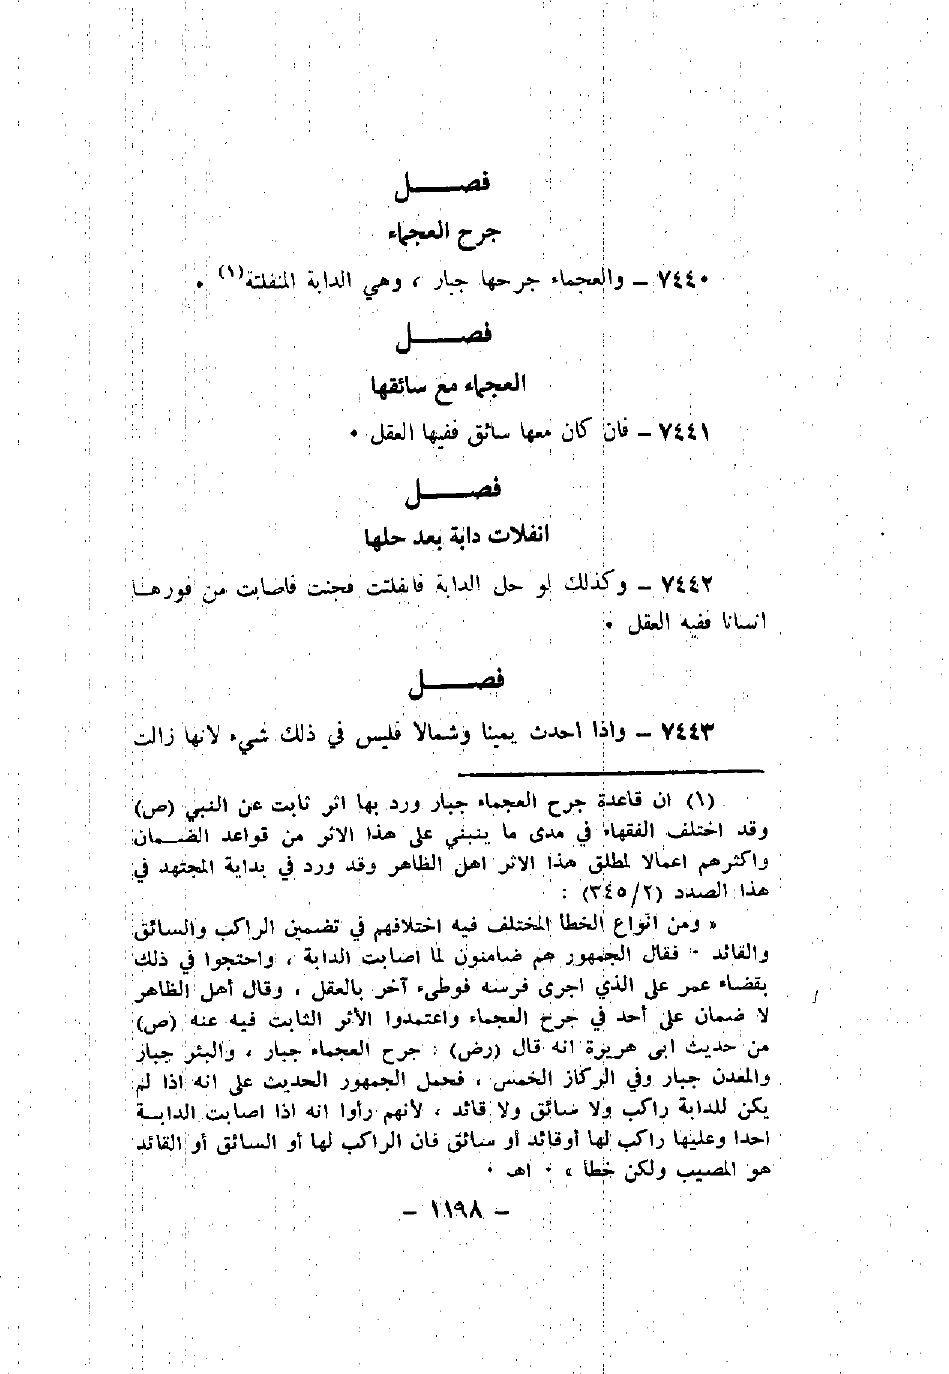 فصـــــل
جرح العجماء
٧٤٤٠ – والعجماء جرحها جبار ، وهي الدابة المنفلتة(١) .
فصـــــل
العجماء مع سائقها
٧٤٤١ – فان كان معها سائق ففيها العقل .
فصـــــل
انفلات دابة بعد حلها
٧٤٤٢ – وكذلك لو حل الدابة فانفلتت فجنت فاصابت من فورهـا
انسانا ففيه العقل .
فصـــــل
٧٤٤٣ – واذا احدث يمينا وشمالا فليس في ذلك شيء لانها زالت
(١) ان قاعدة جرح العجماء جبار ورد بها اثر ثابت عن النبي (ص)
وقد اختلف الفقهاء في مدى ما ينبغي على هذا الاثر من قواعد الضـمان
واكثرهم اعمالا لمطلق هذا الاثر اهل الظاهر وقد ورد في بداية المجتهد في
هذا الصدد (٣٤٥/٢) :
« ومن انواع الخطا المختلف فيه اختلافهم في تضمين الراكب والسائق
والقائد . فقال الجمهور هم ضامنون لما اصابت الدابة ، واحتجوا في ذلك
بقضاء عمر على الذي اجرى فرسه فوطىء آخر بالعقل ، وقال أهل الظاهر
لا ضمان على أحد في جرح العجماء واعتمدوا الأثر الثابت فيه عنه (ص)
من حديث ابى هريرة انه قال (رض) : جرح العجماء جبار ، والبئر جبار
والمعدن جبار وفي الركاز الخمس ، فحمل الجمهور الحديث على انه اذا لم
يكن للدابة راكب ولا سائق ولا قائد ، لأنهم رأوا انه اذا اصابت الدابـة
احدا وعليها راكب لها أوقائد أو سائق فان الراكب لها أو السائق أو القائد
هو المصيب ولكن خطأ » . اهـ .
– ١١٩٨ –